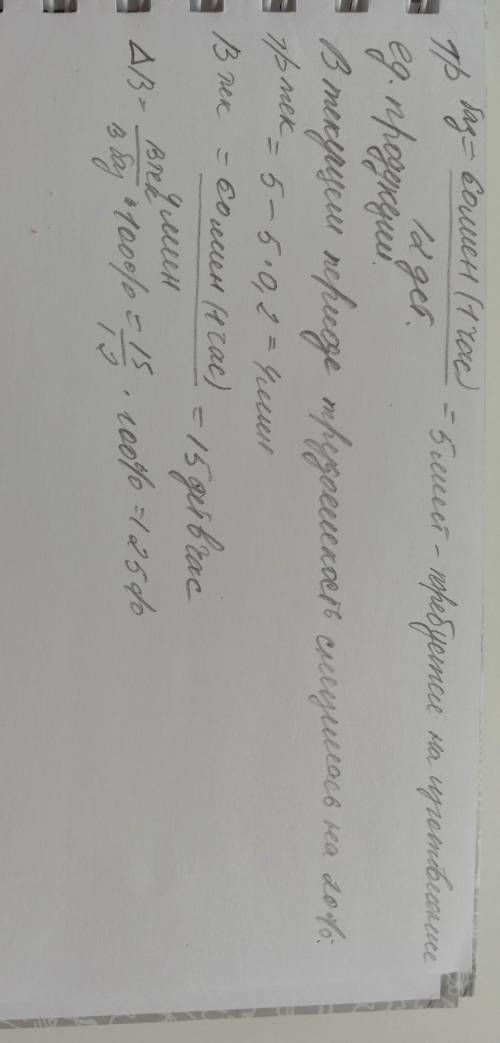 Тр баз = 60 мин (1 час) / 12 дет. = 5 мин - требуется на изготовление
ед. продукции.
В текущем периоде трудоемкость снизилась на 20%.
Тр тек = 5 - 5 · 0,2 = 4 мин
В тек = 60 мин (1 час) / 4 мин = 15 дет в час
ΔВ = В тек / В баз · 100% = 15 / 12 · 100% = 125%